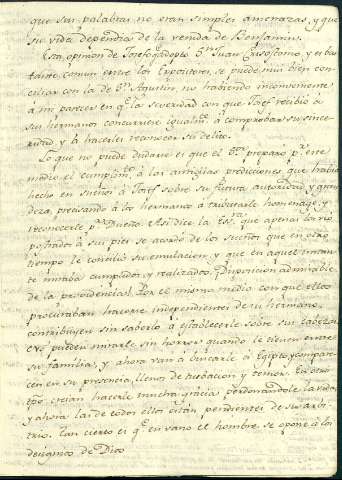 que sus palabras no eran simples amenazas, y que
su vida dependia de la venida de Benjamin.
Esta opinion de Josef adoptó Sn. Juan Crisostomo, y es bas
tante comun entre los Expositores, se puede mui bien con
ciliar con la de Sn. Agustin, no habiendo inconveniente
á mi parecer en qe. la severidad con que Josef recibió á
sus hermanos concurriese igualmte. á comprobar su since
ridad y á hacerles reconocer su delito.
Lo que no puede dudarse es que el Sr. preparó pr. este
medio el cumplimto. á las antiguas predicciones que habia
hecho en sueños á Josef sobre su futura autoridad y gran
deza, precisando á los hermanos á tributarle homenage, y
reconocerle pr. Dueño. Asi dice la Esra. que apenas los vió
postrados á sus pies se acordó de los sueños que en otro
tiempo le concilió su emulacion, y que en aquel instan
te miraba cumplidos y realizados. Disposicion admirable
de la providencia! Por el mismo medio con que ellos
procuraban hacerse independientes de su hermano,
contribuyen sin saberlo á establecerle sobre sus cabezas
pueden mirarle sin horror quando le tienen entre
su familia, y ahora van á buscarle á Egipto, y compare
cen en su presencia, llenos de turbacion y temor. En otro
tpo. creían hacerle mucha gracia perdonandole la vida
y ahora las de todos ellos estan pendientes de su arbi
trio. Tan cierto es qe. en vano el hombre se opone á los
designios de Dios